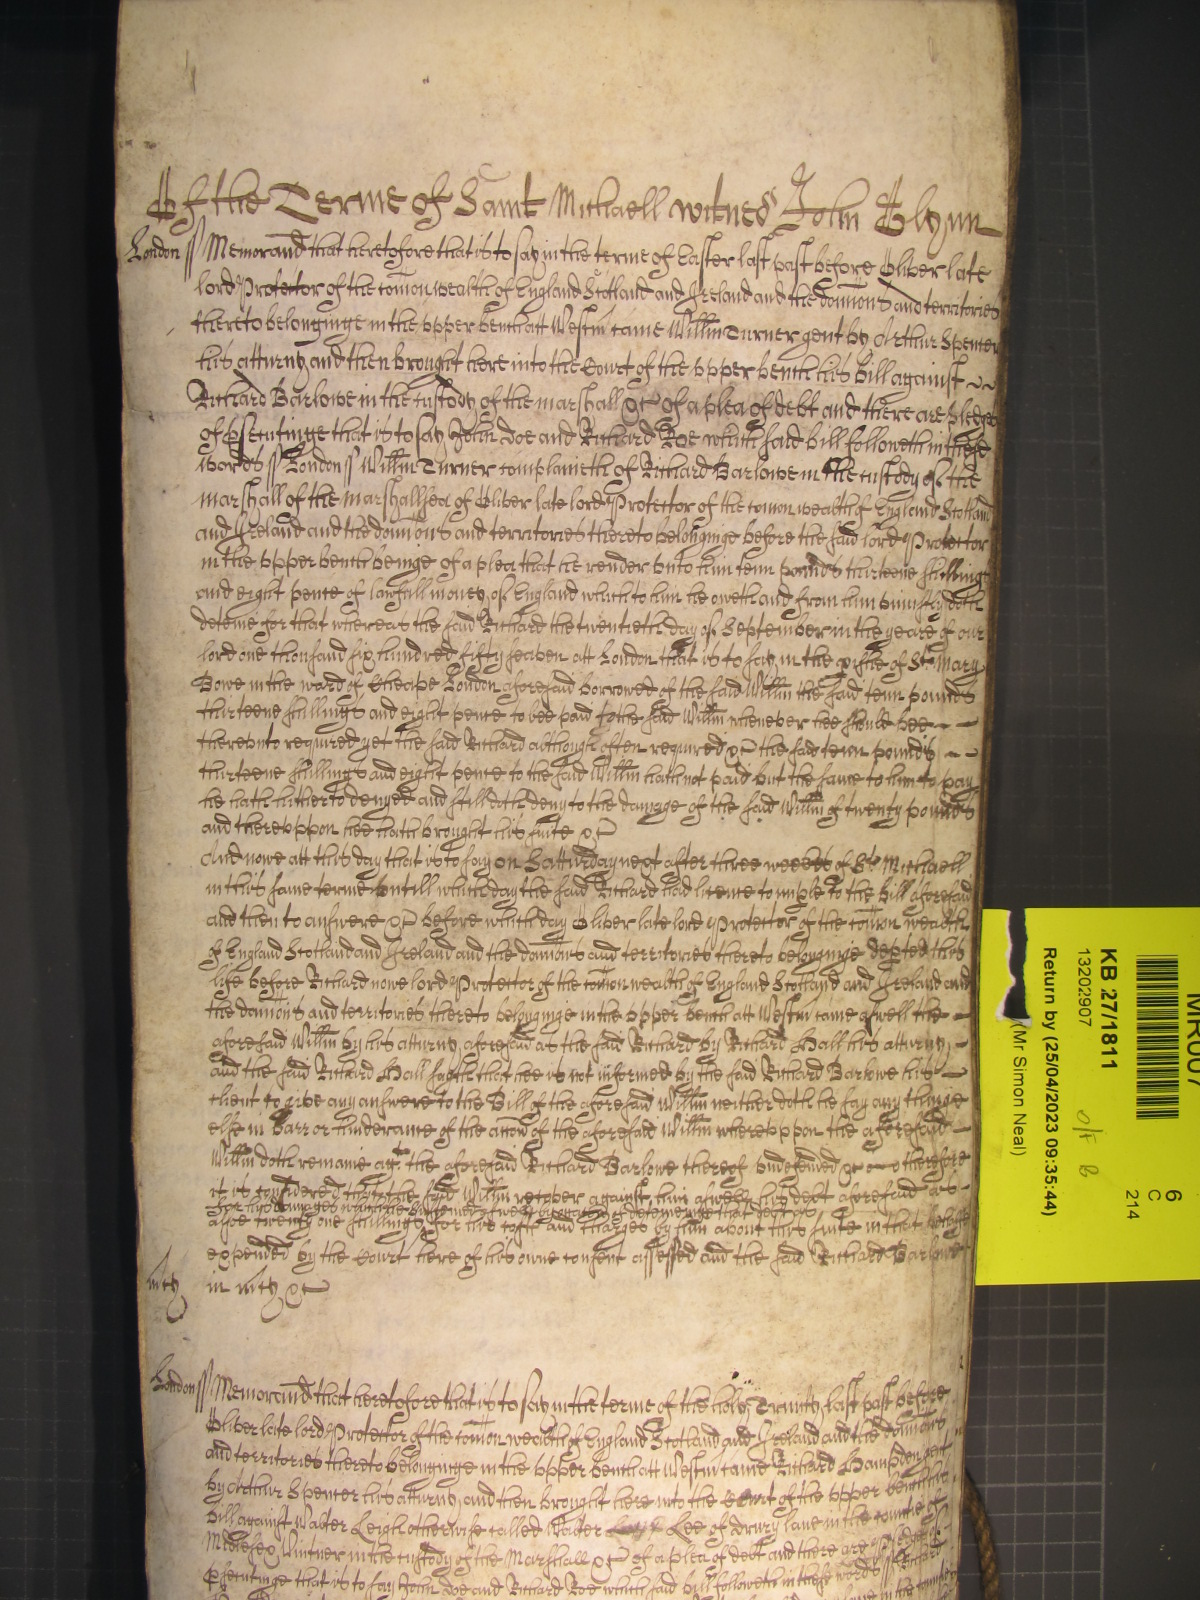 Of the Terme of Saint Michaell witnes John Glynn
London ss Memorand that heretofore that is to say in the terme of Easter last past before Oliver late
lord Protector of the comon wealth of England Scotland and Ireland and the dominions and territories
thereto belonginge in the upper bench att Westm came Willm Turner gent by Arthur Spencer
his atturny and then brought here into the Court of the upper bench his bill against
Richard Barlowe in the custody of the marshall &c of a plea of debt and there are pledges
of psecutinge that is to say John Doe and Richard Roe which said bill followeth in these
words ss London ss Willm Turner complaineth of Richard Barlowe in the custody of the
marshall of the marshallsea of Oliver late lord Protector of the comon wealth of England Scotland
and Ireland and the dominions and territories thereto belonginge before the said lord Protector
in the upper bench beinge of a plea that he render unto him tenn pounds thirteene shillings
and eight pence of lawfull money of England which to him he oweth and from him uniustly doth
deteine for that whereas the said Richard the twentieth day of September in the yeare of our
lord one thousand six hundred fifty seaven att London that is to say in the pishe of St Mary
Bowe in the ward of Cheape London aforesaid borrowed of the said Willm the said tenn pounds
thirteene shillings and eight pence to bee paid to the said Willm whenever hee should bee
thereunto required yet the said Richard although often required &c the said tenn pounds
thirteene shillings and eight pence to the said Willm hath not paid but the same to him to pay
he hath hitherto denyed and still doth deny to the damage of the said Willm of twenty pounds
and thereuppon hee hath brought his suite &c
And nowe att this day that is to say on Satturday next after three weeks of St Michaell
in this same terme untill which day the said Richard had licence to imple to the bill aforesaid
and then to answere &c before which day Oliver late lord Protector of the comon wealth
of England Scotland and Ireland and the dominions and territories thereto belonginge depted this
life before Richard nowe lord Protector of the comon wealth of England Scotland and Ireland and
the dominions and territories thereto belonginge in the upper bench att Westm came aswell the
aforesaid Willm by his atturny aforesaid as the said Richard by Richard Hall his atturny
and the said Richard Hall sayth that hee is not informed by the said Richard Barlowe his
client to give any answere to the Bill of the aforesaid Willm neither doth he say any thinge
else in barr or hinderance of the accon of the aforesaid Willm whereuppon the aforesaid
Willm doth remaine agt the aforesaid Richard Barlowe thereof undefended &c therefore
it is considered that the said Willm recover against him aswell his debt aforesaid as
for his damages which he sustained aswell by occasion of deteininge that debt as
alsoe twenty one shillings for his costs and charges by him about his suite in that behalfe
expended by the Court here of his owne consent assessed and the said Richard Barlowe
mcy in mcy &c
London ss Memorand that heretofore that is to say in the terme of the holy Trinity last past before
Oliver late lord Protector of the comon wealth of England Scotland and Ireland and the dominions
and territories thereto belonginge in the upper bench att Westm came Richard Hampden gent
by Arthur Spencer his atturny and then brought here into the Court of the upper bench his
bill against Walter Leigh otherwise called Walter Lee of drury lane in the countie of
Middlesex Vintner in the custody of the Marshall &c of a plea of debt and there are pledges of
psecutinge that is to say John Doe and Richard Roe which said bill followeth in these words ss
MR007
6
C
214
KB 27/1811
13202907
O/F B
Return by (25/04/2023 09:35:44)
(Mr Simon Neal)